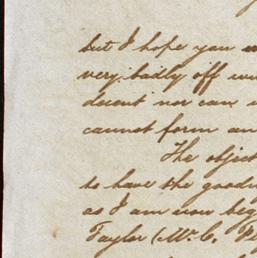 but I hope you
very badly off
decent nor can
cannot form an
The object
to have the good
as I am now beg
Taylor (Mr. C.